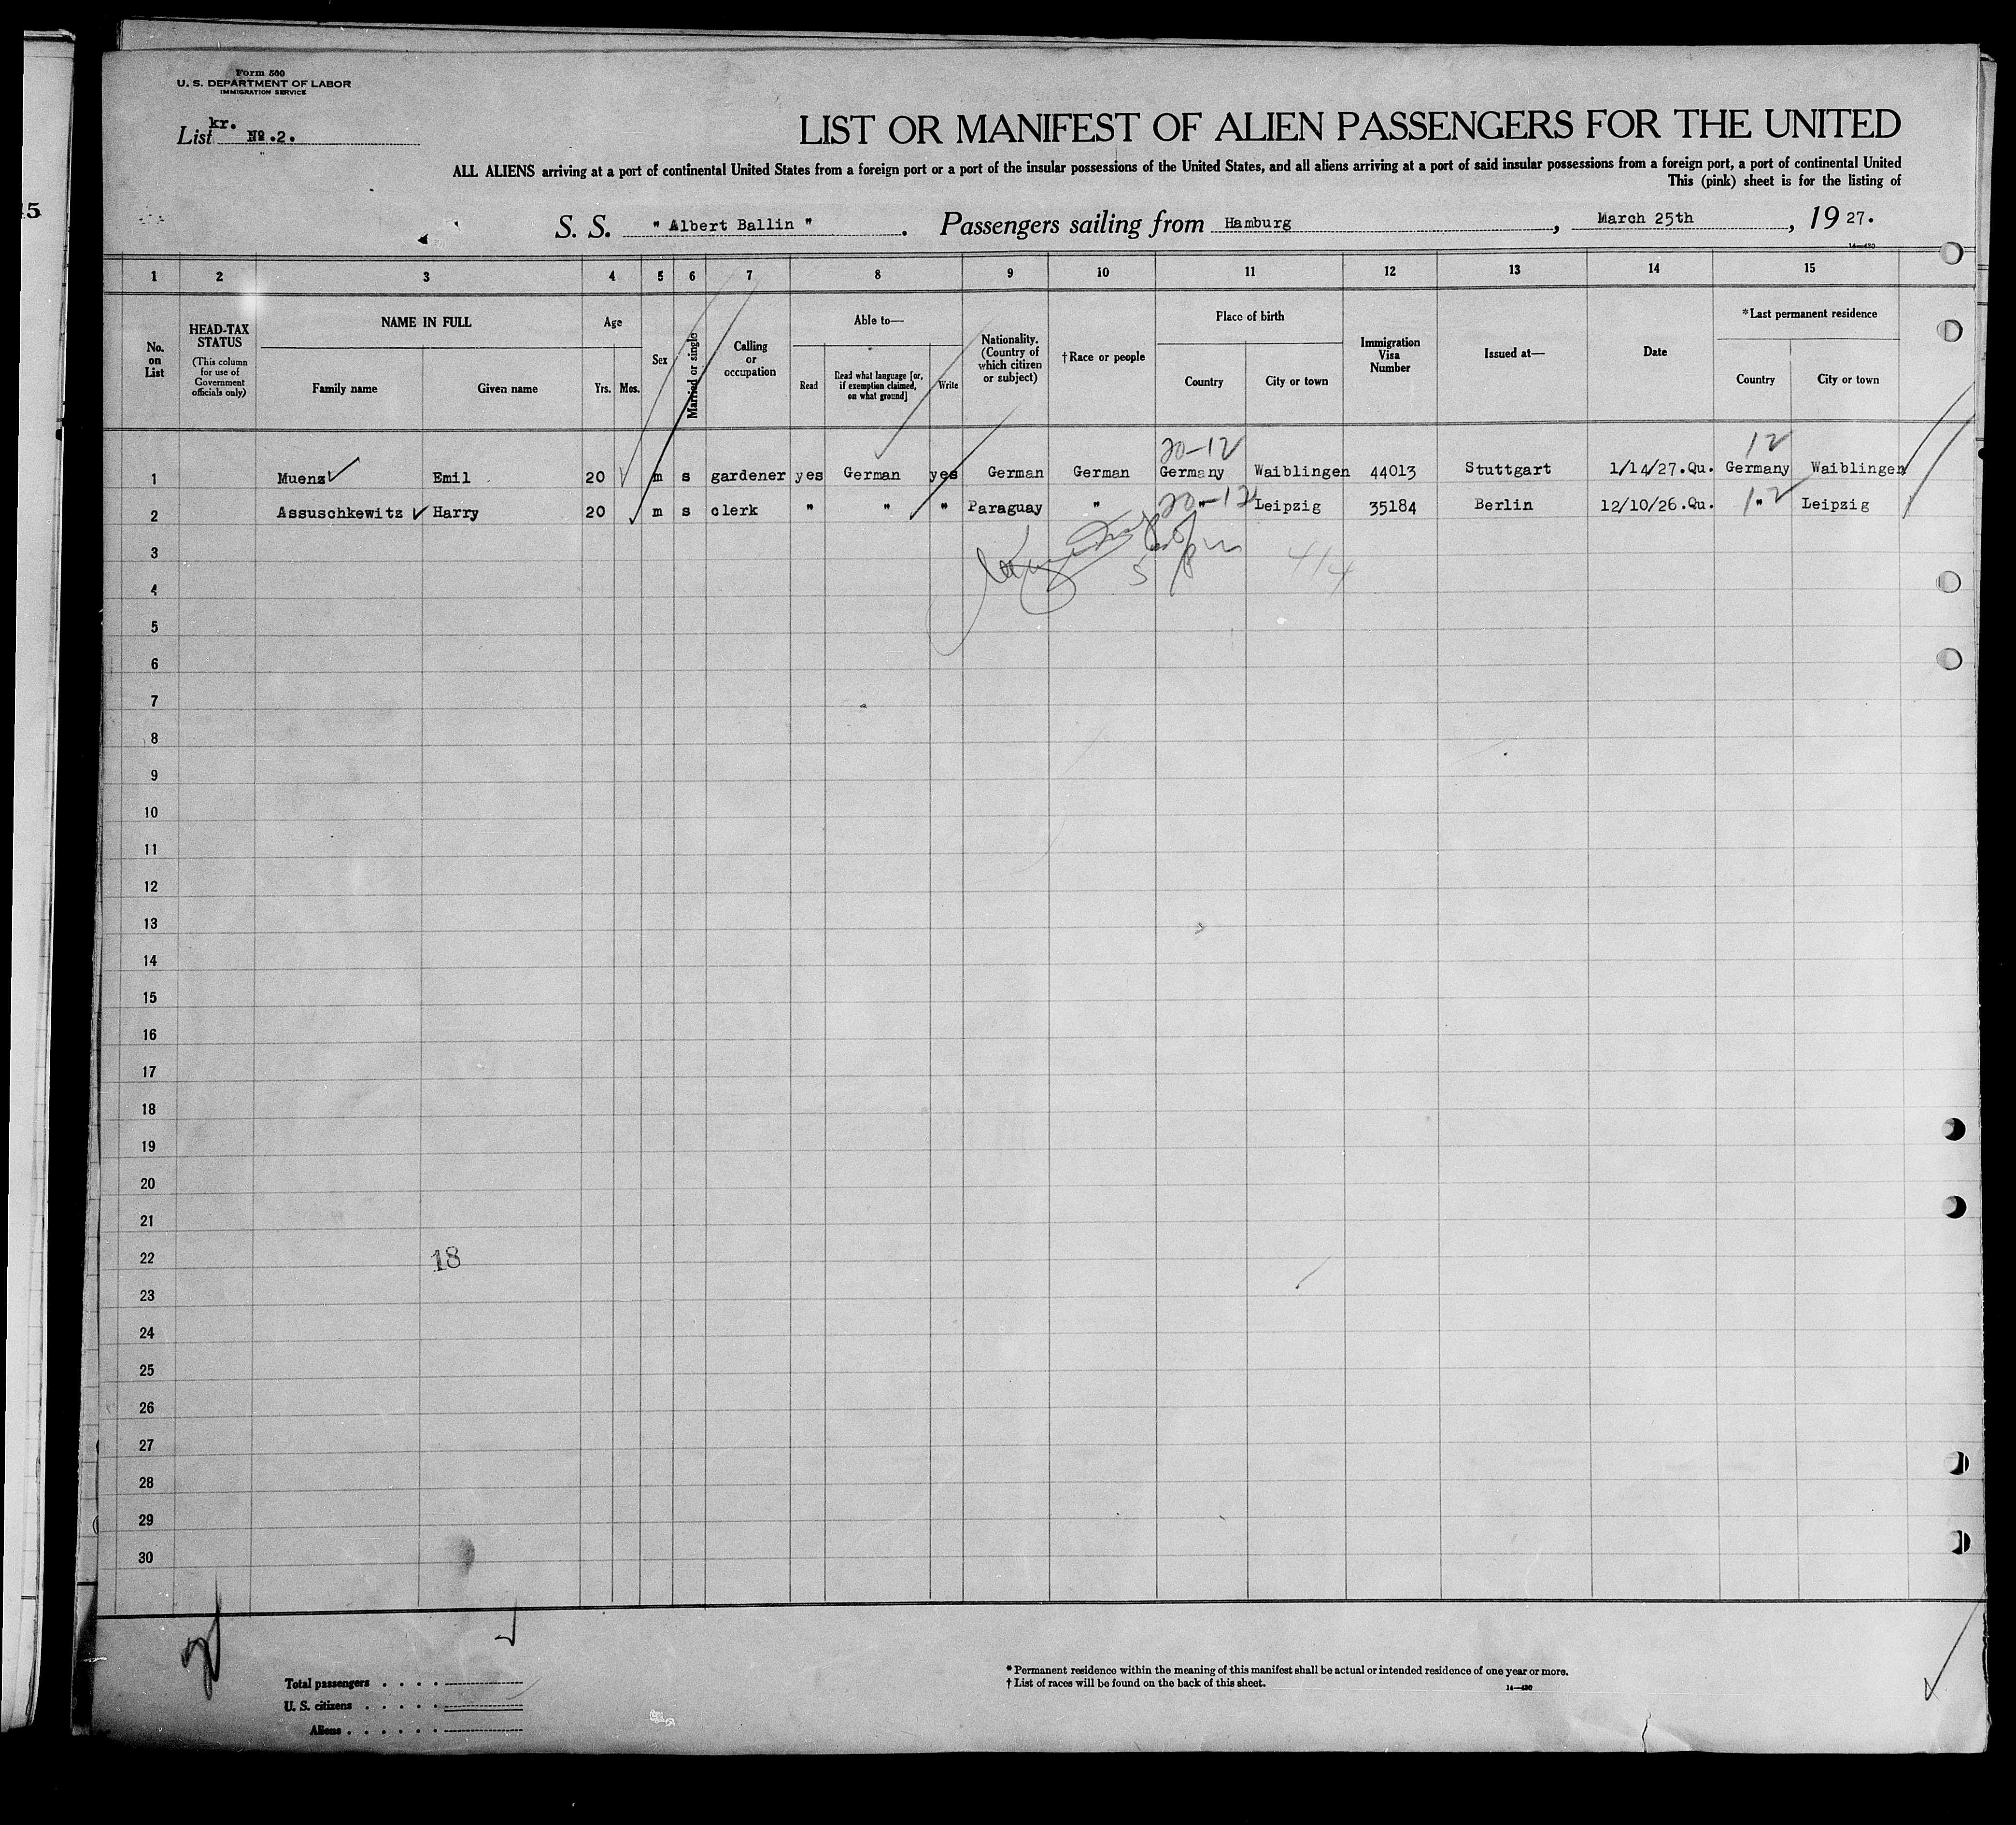 15
Form 500
U. S. DEPARTMENT OF LABOR
IMMIGRATION SERVICE
List kr. No.2.
LIST OR MANIFEST OF ALIEN PASSENGERS FOR THE UNITED
ALL ALIENS arriving at a port of continental United States from a foreign port or a port of the insular possessions of the United States, and all aliens arriving at a port of said insular possessions from a foreign port, a port of continental United
This (pink) sheet is for the listing of
S. S. " Albert Ballin ". Passengers sailing from Hamburg, March 25th, 1927.
14—430
1 2 3 4 5 6 7 8 9 10 11 12 13 14 15
No. on List
HEAD-TAX STATUS
(This column for use of Government officials only)
NAME IN FULL
Family name Given name
Age
Yrs. Mos.
Sex
Married or single
Calling or occupation
Able to—
Read Read what language [or, if exemption claimed, on what ground] Write
Nationality. (Country of which citizen or subject)
†Race or people
Place of birth
Country City or town
Immigration Visa Number
Issued at—
Date
*Last permanent residence
Country City or town
20-12 12
1 Muenz Emil 20 m s gardener yes German yes German German Germany Waiblingen 44013 Stuttgart 1/14/27.Qu. Germany Waiblingen
20-12 12
2 Assuschkewitz Harry 20 m s clerk " " " Paraguay " " Leipzig 35184 Berlin 12/10/26.Qu. " Leipzig
3
4/4
4
5
6
7
8
9
10
11
12
13
14
15
16
17
18
19
20
21
22 18
23
24
25
26
27
28
29
30
Total passengers . . . .
U. S. citizens . . . . .
Aliens . . . . . .
* Permanent residence within the meaning of this manifest shall be actual or intended residence of one year or more.
† List of races will be found on the back of this sheet.
14—430